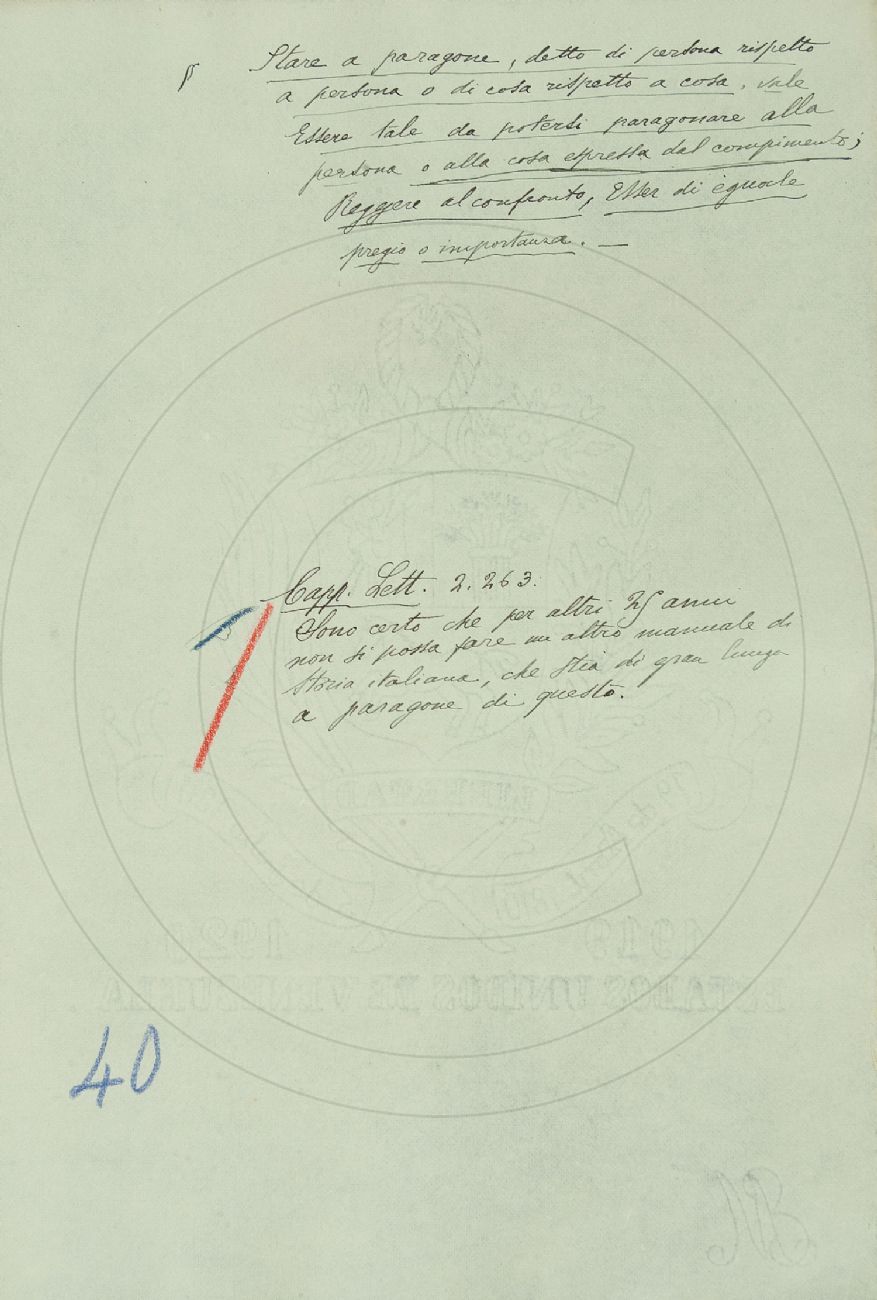 § Stare a paragone, detto di persona rispetto
a persona o di cosa rispetto a cosa, vale
Essere tale da potersi paragonare alla
persona o alla cosa espressa dal compimento;
Reggere al confronto, Esser di eguale
pregio o importanza. —
Capp. Lett. 2. 263.
Sono certo che per altri 25 anni
non si possa fare un altro manuale di
Storia italiana, che stia di gran lunga
a paragone di questo.
LIBERTAD
19 de Abril
1919 1920
ESTADOS UNIDOS DE VENEZUELA
40